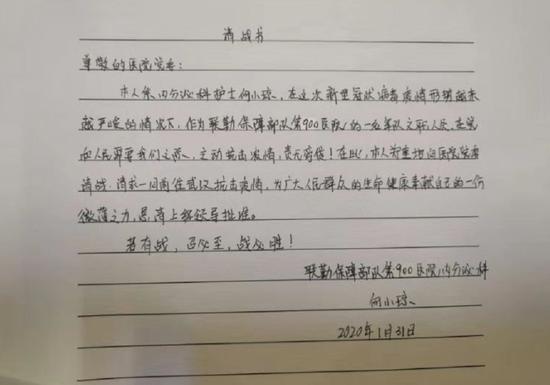 请战书
尊敬的医院党委：
本人系内分泌科护士何小琼，在这次新型冠状病毒疫情形势越来
越严峻的情况下，作为联勤保障部队第900医院的一名军队文职人员，在党
和人民需要我们之际，主动抗击疫情，责无旁贷！在此，本人郑重地向医院党委
请战，请求一同前往武汉抗击疫情，为广大人民群众的生命健康奉献自己的一份
微薄之力，恳请上级领导批准。
若有战，召必至，战必胜！
联勤保障部队第900医院内分泌科
何小琼
2020年1月31日